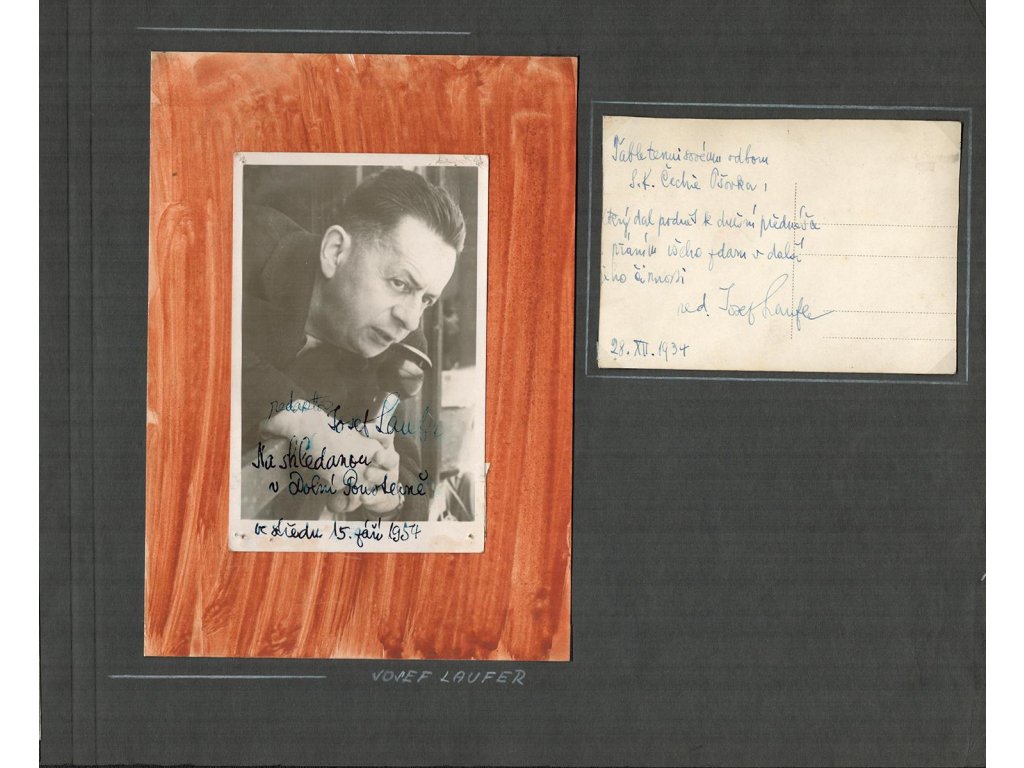 redaktor Josef Laufer
Na shledanou
v Dolní Poustevně
ve středu 15. září 1954
JOSEF LAUFER
Tabletennisovému odboru
S.K. Čechie
který dal podnět k dnešní
přáním všeho zdaru v další
jeho činnosti
red. Josef Laufer
28. XII. 1934